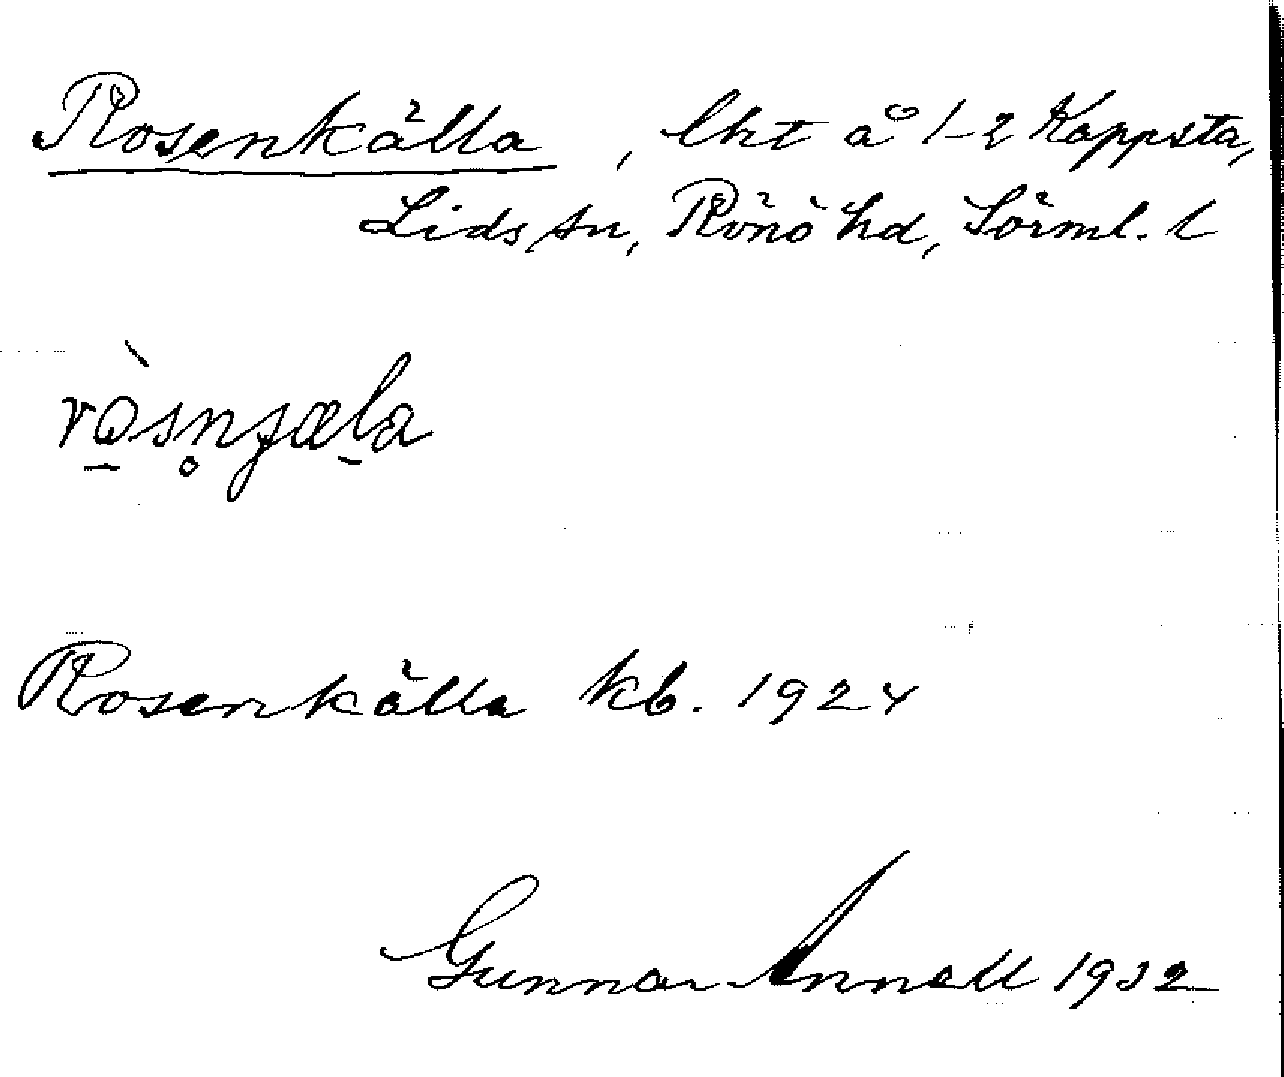 Rosenkälla, lht å 1-2 Kappsta,
Lids sn, Rönö hd, Sörml. l
rò̱sn̥ʒæl̠a
Rosenkälla kb. 1924
Gunnar Annell 1932